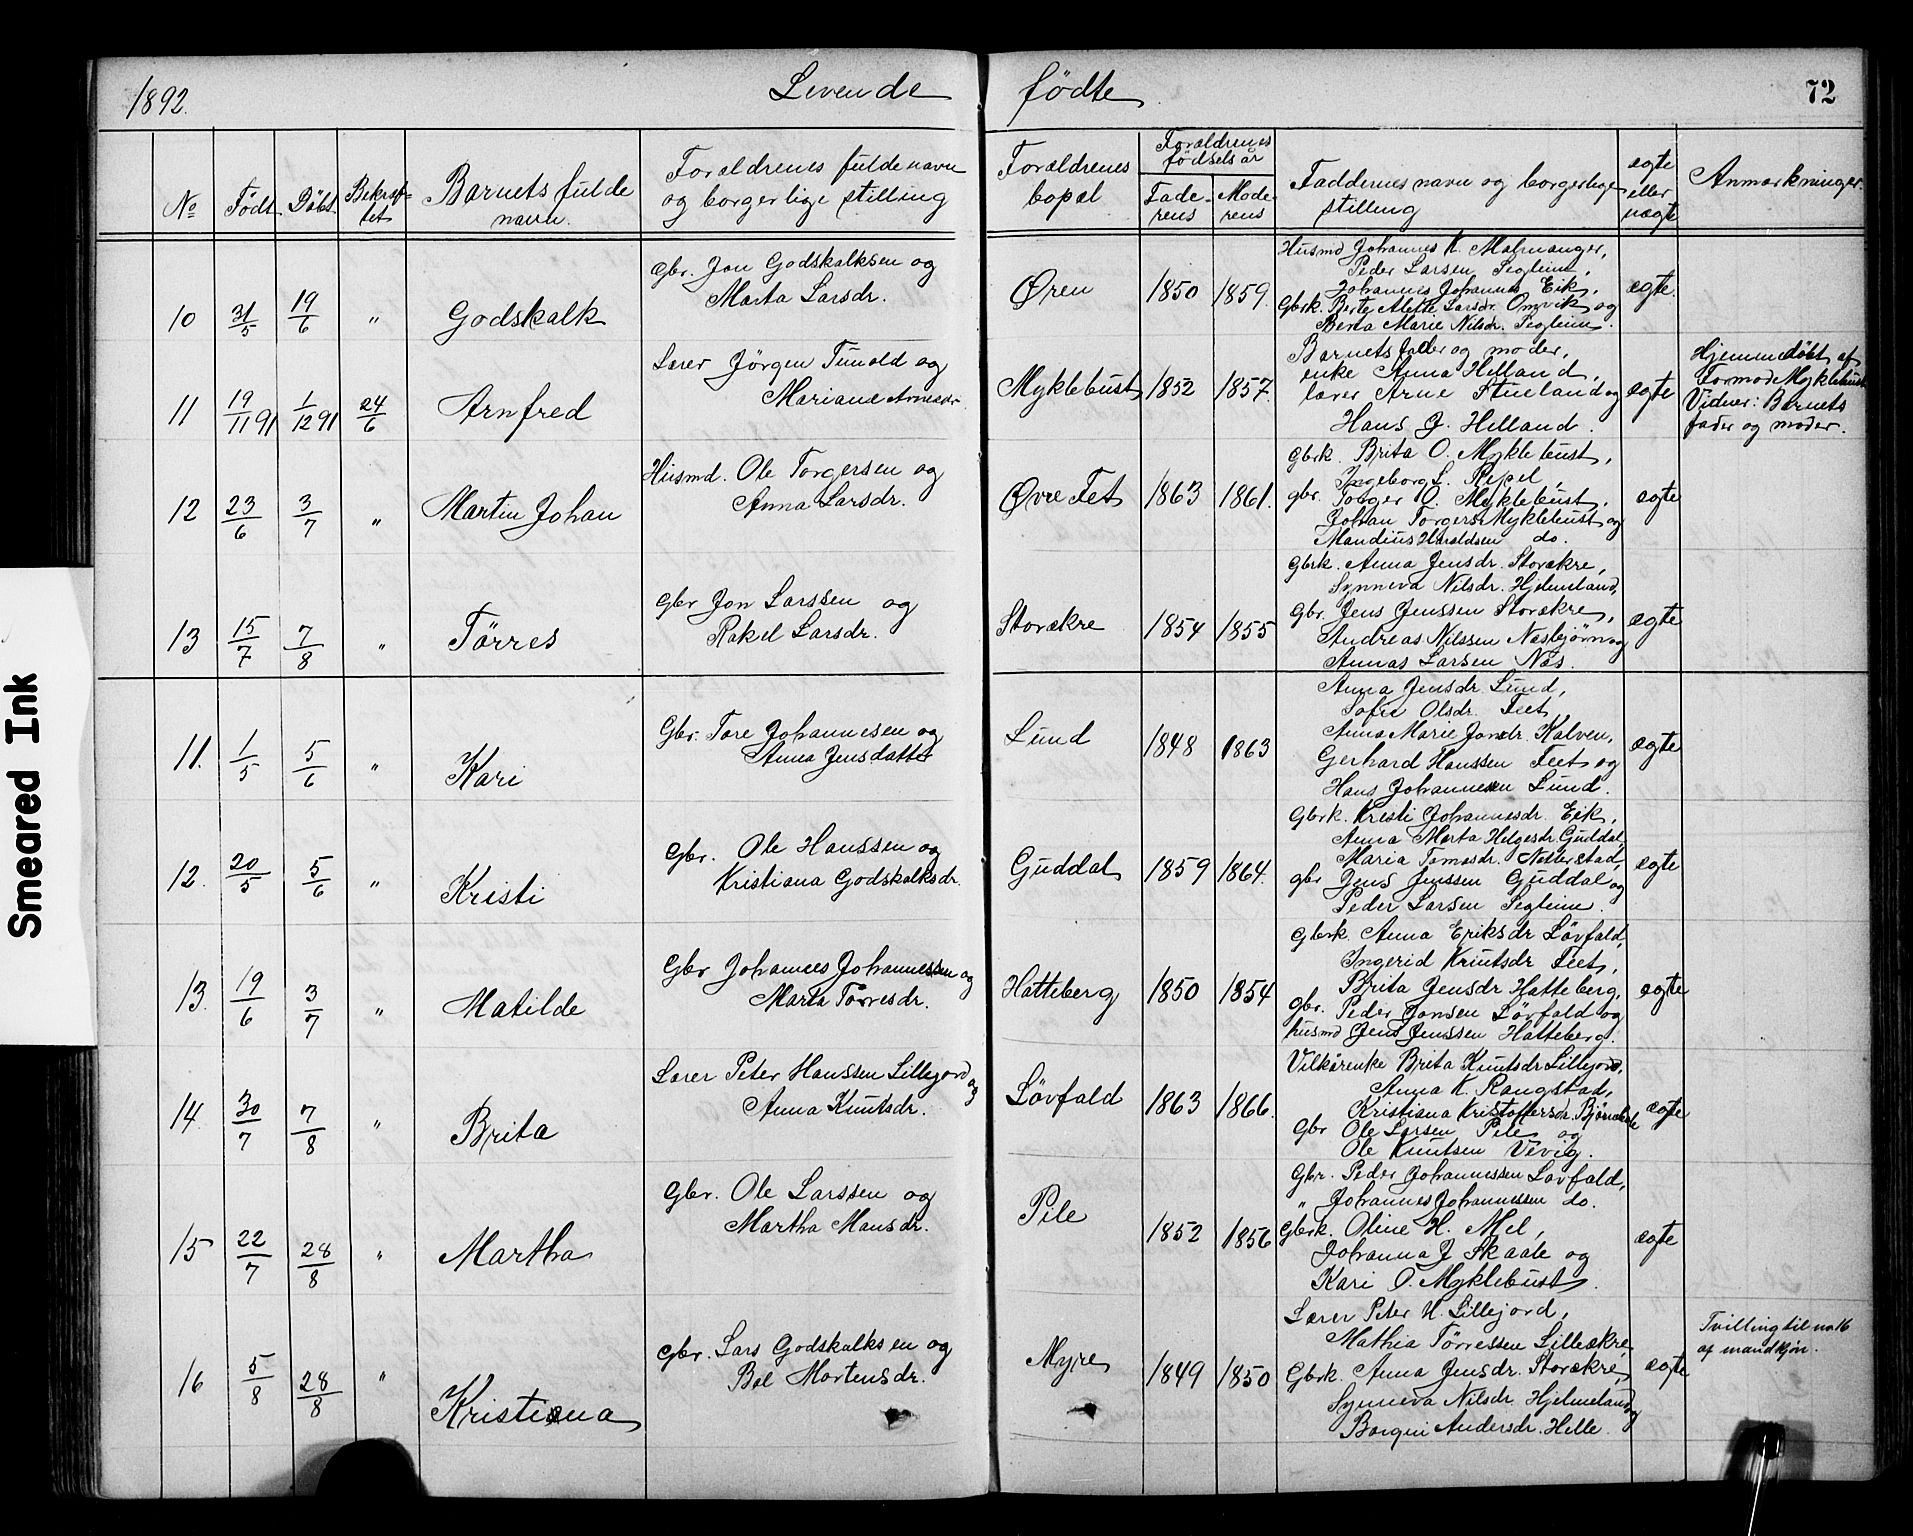 1892.
Levende fødte
72
Smeared Ink
№ Født Døbt Bekræf- Barnets fulde Forældrenes fulde navn Forældrenes Forældrenes fødselsår Faddernes navn og borgerlige ægte Anmærkninger.
tet navn. og borgerlige stilling bopæl Fade- Mode- stilling eller
rens rens uægte
10 31/5 19/6 " Godskalk
gbr. Jon Godskalksen og
Marta Larsdr.
Øren 1850 1859.
Husmd Johannes K. Malmanger,
Peder Larsen Segleim,
Johannes Johannes Eik,
Gbrk. Berte Alette Larsdr. Omvik og
Berta Marie Nilsdr. Segleim.
ægte.
11 19/11 91 1/12 91 24/6 Arnfred
Lærer Jörgen Tunold og
Mariane Arnesdr.
Myklebust 1852 1857.
Barnets fader og moder,
enke Anna Helland,
lærer Arne Stueland og
Hans J. Helland.
ægte
Hjemmedøbt af
Formod Myklebust
Vidner: Barnets
fader og moder.
12 23/6 3/7 " Martin Johan
Husmd. Ole Torgersen og
Anna Larsdr.
Øvre Fet 1863 1861.
Gbrk. Brita O. Myklebust,
Ingeborg L. Repel,
gbr. Torger O. Myklebust,
Johan Torgers Myklebust og
Mandius Haraldsen do.
ægte
13 15/7 7/8 " Tørres
gbr Jon Larssen og
Rakel Larsdr.
Storækre 1854 1855
Gbrk. Anna Jensdr. Storækre,
Synneva Nilsdr. Hjelmeland,
Gbr. Jens Jenssen Storækre,
Andreas Nilssen Næsbjörn og
Annas Larsen Næs.
ægte
11. 1/5 5/6 " Kari
Gbr. Tore Johannesen og
Anna Jensdatter
Lund 1848 1863
Anna Jensdr. Lund,
Sofie Olsdr. Feet,
Anna Marie Jonsdr. Kalven,
Gerhard Hanssen Feet og
Hans Johannesen Lund.
ægte
12. 20/5 5/6 " Kristi
Gbr. Ole Hanssen og
Kristiana Godskalksdr.
Guddal 1859 1864.
Gbrk. Kresti Johannesdr. Eik,
Anna Marta Helgesdr. Guddal,
Maria Tomasdr. Nesterstad,
gbr Jens Jenssen Guddal og
Peder Larsen Segleim.
ægte
13. 19/6 3/7 " Matilde
Gbr Johannes Johannessen og
Marta Tørresdr.
Hatteberg 1850 1854
Gbrk. Anna Eriksdr Lövfald,
Ingerid Knutsdr Feet,
Brita Jensdr Hatteberg,
gbr. Peder Jonsen Lövfald og
husmd Jens Jenssen Hatteberg.
ægte
14. 30/7 7/8 " Brita
Lærer Peter Hanssen Lillejord og
Anna Knutsdr.
Lövfald 1863 1866.
Vilkårenke Brita Knutsdr Lillejord,
Anna K. Rangstad,
Kristiana Kristoffersdr.
Gbr Ole Larsen Pile og
Ole Knutsen Vevig.
ægte
15 22/7 28/8 " Martha
Gbr. Ole Larssen og
Martha Mansdr.
Pile 1852 1856
Gbr. Peder Johannessen Lövfald,
" Johannes Johannessen do.
Gbrk. Oline H. Mel,
Johanna J Skaale og
Kari O. Myklebust.
ægte
16 5/8 28/8 " Kristiana
gbr. Lars Godskalksen og
Bol Mortensdr.
Myre 1849 1850
Lærer Peter H. Lillejord,
Mathia Tørressen Lilleækre,
Gbrk. Anna Jensdr. Storækre,
Synneva Nilsdr. Hjelmeland og
Borgni Andersdr. Helle.
ægte
Tvilling til no 16
af mandkjön.